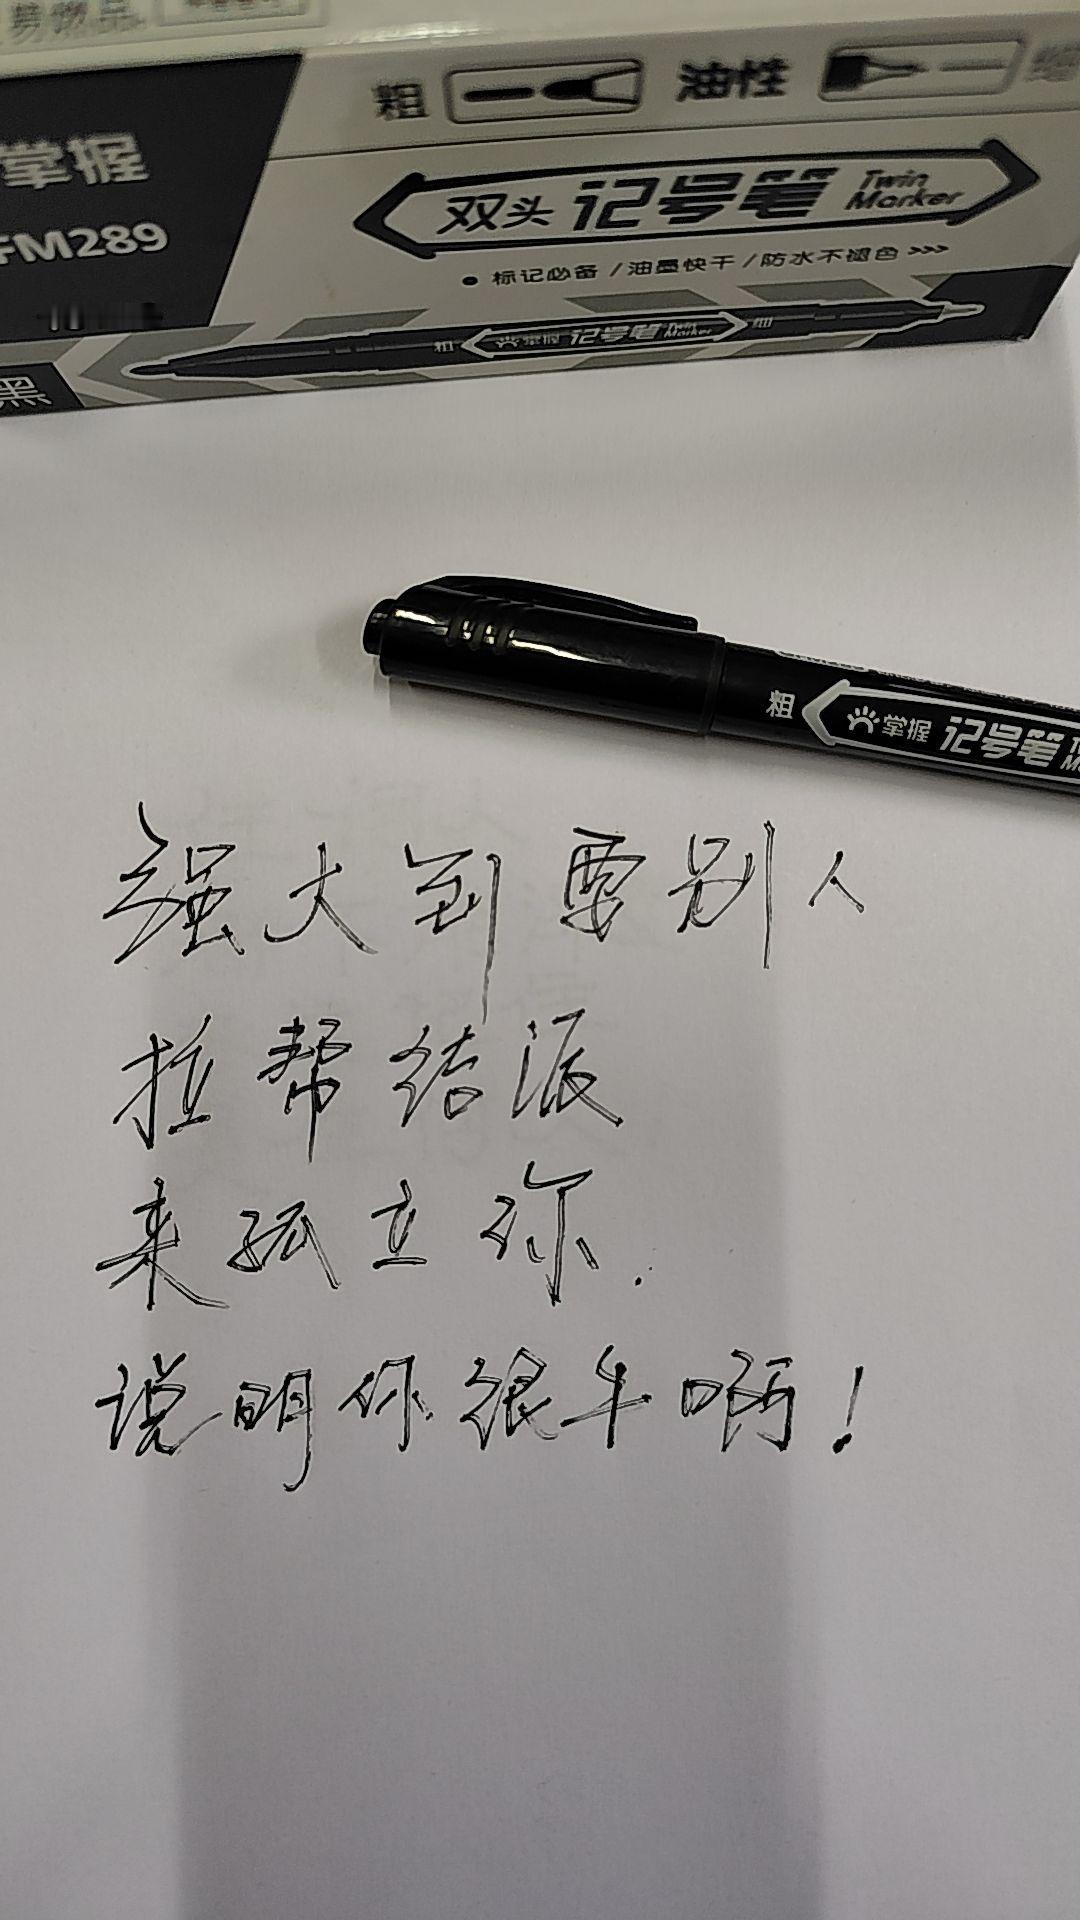 易物品
粗 油性
掌握
FM289
双头 记号笔 Twin Marker
● 标记必备 / 油墨快干 / 防水不褪色 >>>
粗 掌握 记号笔 Twin Marker 细
黑
粗 掌握 记号笔
强大到要别人
拉帮结派
来孤立你.
说明你很牛啊!